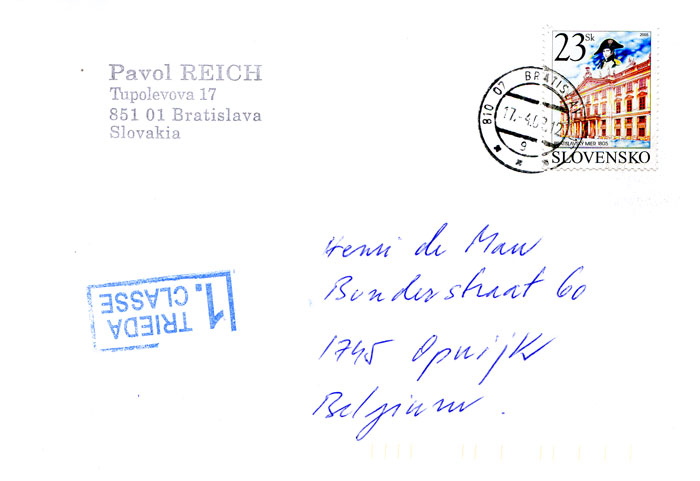 Pavol REICH
Tupolevova 17
851 01 Bratislava
Slovakia
23 Sk
BRATISLAVSKÝ MIER 1805
SLOVENSKO
810 07 BRATISLAVA
9
1. TRIEDA
CLASSE
Henri de Maw
Bonderstraat 60
1745 Opwijk
Belgium.